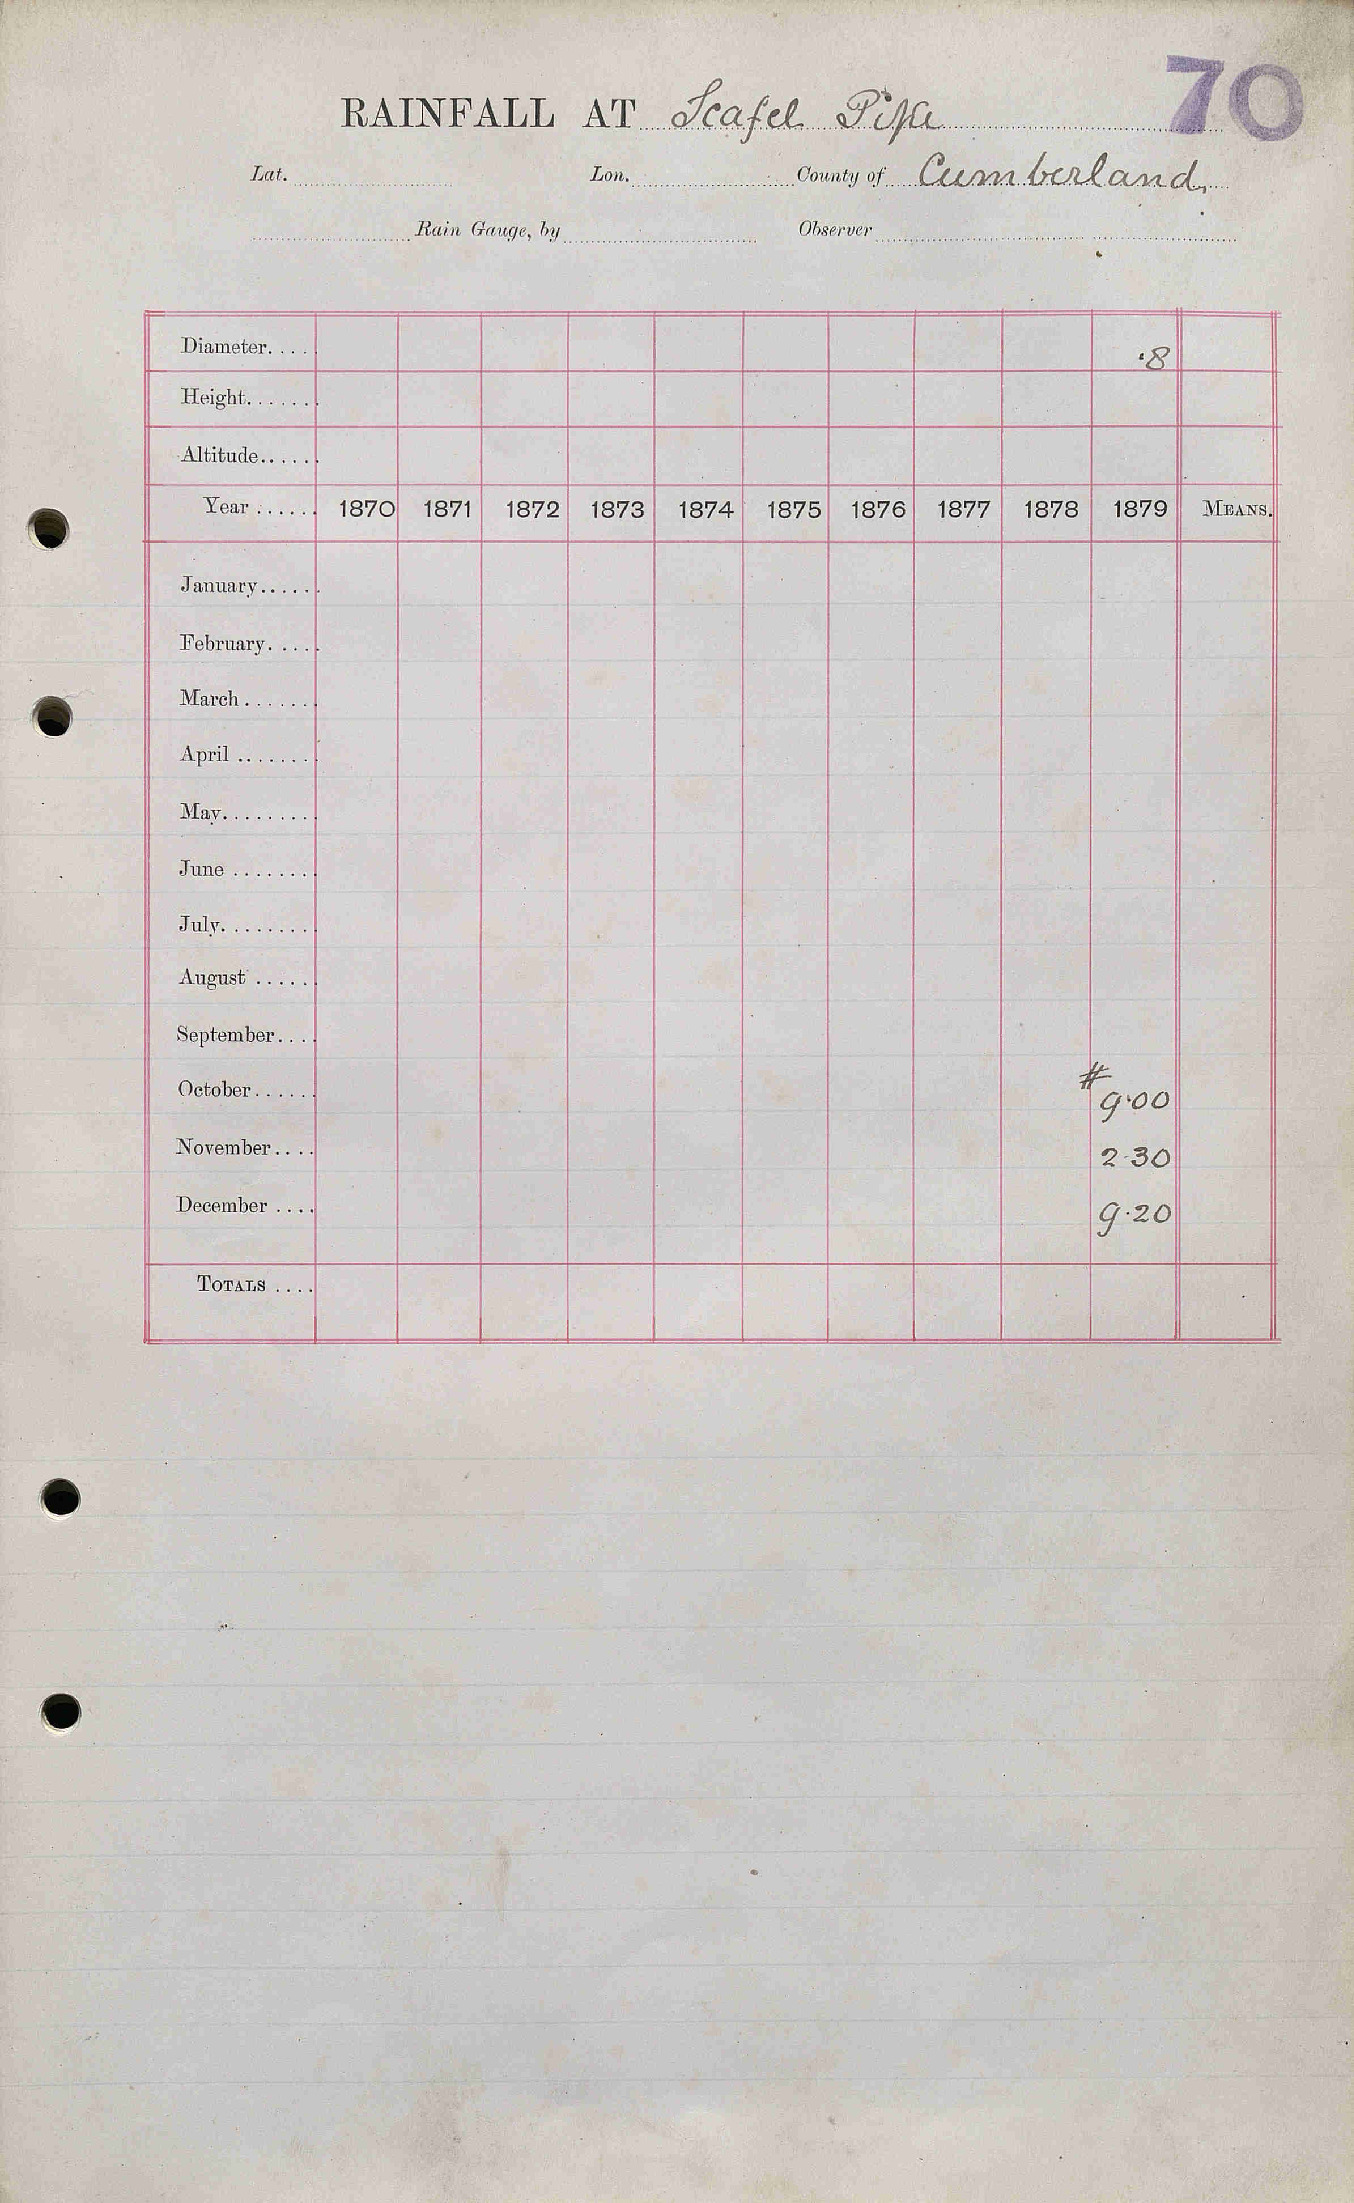 70
RAINFALL AT Scafel Pike
Lat. Lon. County of Cumberland.
Rain Gauge, by Observer
Diameter.... ·8
Height.......
Altitude......
Year ...... 1870 1871 1872 1873 1874 1875 1876 1877 1878 1879 MEANS.
January......
February.....
March.......
April........
May.........
June ........
July.........
August ......
September....
October...... # 9·00
November.... 2·30
December .... 9·20
TOTALS ....